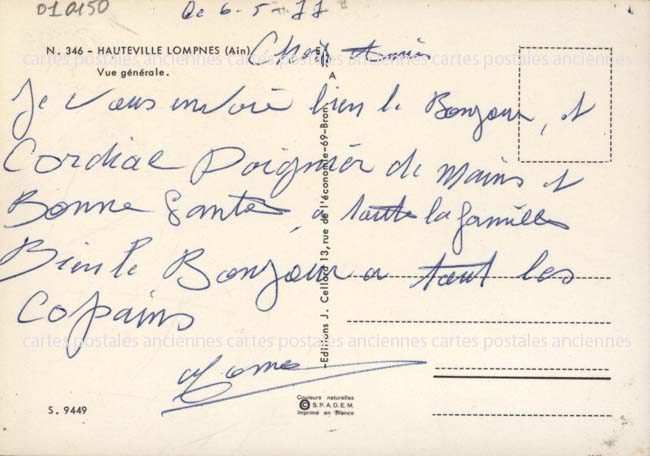 010150
Le 6-5-77
N. 346 - HAUTEVILLE LOMPNES (Ain)
Vue générale.
Cher Amis
A
cartes postales anciennes cartes postales anciennes cartes postales anciennes
Je vous envoie bien le Bonjour, et
Cordial Poignier de Mains et
Bonne Santes, a toute la familles
Bien le Bonjour a tout les
Copains
cartes postales anciennes cartes postales anciennes cartes postales anciennes
-Editions J. Cellard 13, rue de l'économie-69-Bron
S. 9449
Couleurs naturelles
© S.P.A.D.E.M.
Imprimé en France